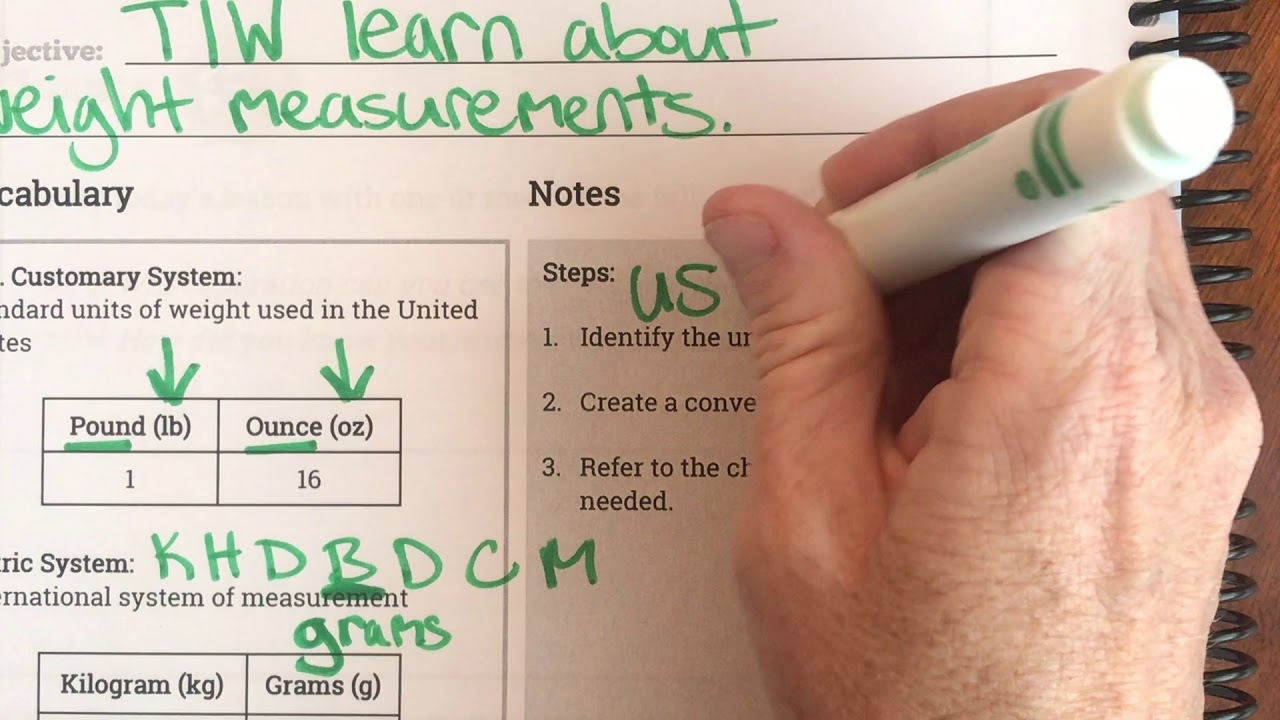 jective: TIW learn about
weight measurements.
cabulary
Notes
. Customary System:
ndard units of weight used in the United
tes
Pound (lb) Ounce (oz)
1 16
ric System: K H D B D C M
ernational system of measurement
grams
Kilogram (kg) Grams (g)
Steps: US
1. Identify the un
2. Create a conve
3. Refer to the ch
needed.